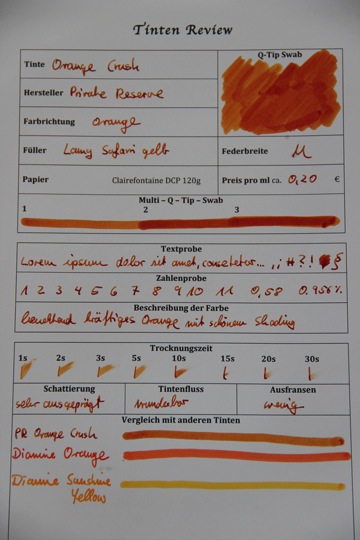 Tinten Review
Tinte Orange Crush
Q-Tip Swab
Hersteller Private Reserve
Farbrichtung Orange
Füller Lamy Safari gelb
Federbreite M
Papier Clairefontaine DCP 120g
Preis pro ml ca. 0,20 €
Multi – Q – Tip – Swab
1 2 3
Textprobe
Lorem ipsum dolor sit amet, consetetur... ,; # ? ! § 
Zahlenprobe
1 2 3 4 5 6 7 8 9 10 11 0,58 0.956%
Beschreibung der Farbe
leuchtend kräftiges Orange mit schönem Shading
Trocknungszeit
1s 2s 3s 5s 10s 15s 20s 30s
Schattierung Tintenfluss Ausfransen
sehr ausgeprägt wunderbar wenig
Vergleich mit anderen Tinten
PR Orange Crush
Diamine Orange
Diamine Sunshine
Yellow